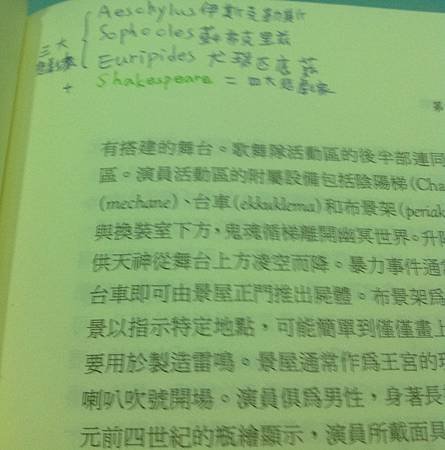 Aeschylus 伊斯克
Sophocles 蘇弗克里茲
三大 Euripides 尤瑞匹底茲
悲劇家
+ Shakespeare = 四大悲劇家
第
有搭建的舞台。歌舞隊活動區的後半部連同
區。演員活動區的附屬設備包括陰陽梯(Cha
(mechane)、台車(ekkuklema)和布景架(periak
與換裝室下方,鬼魂循梯離開幽冥世界。升降
供天神從舞台上方凌空而降。暴力事件通常
台車即可由景屋正門推出屍體。布景架爲
景以指示特定地點,可能簡單到僅僅畫上
要用於製造雷鳴。景屋通常作爲王宮的
喇叭吹號開場。演員俱爲男性,身著長
元前四世紀的瓶繪顯示,演員所戴面具